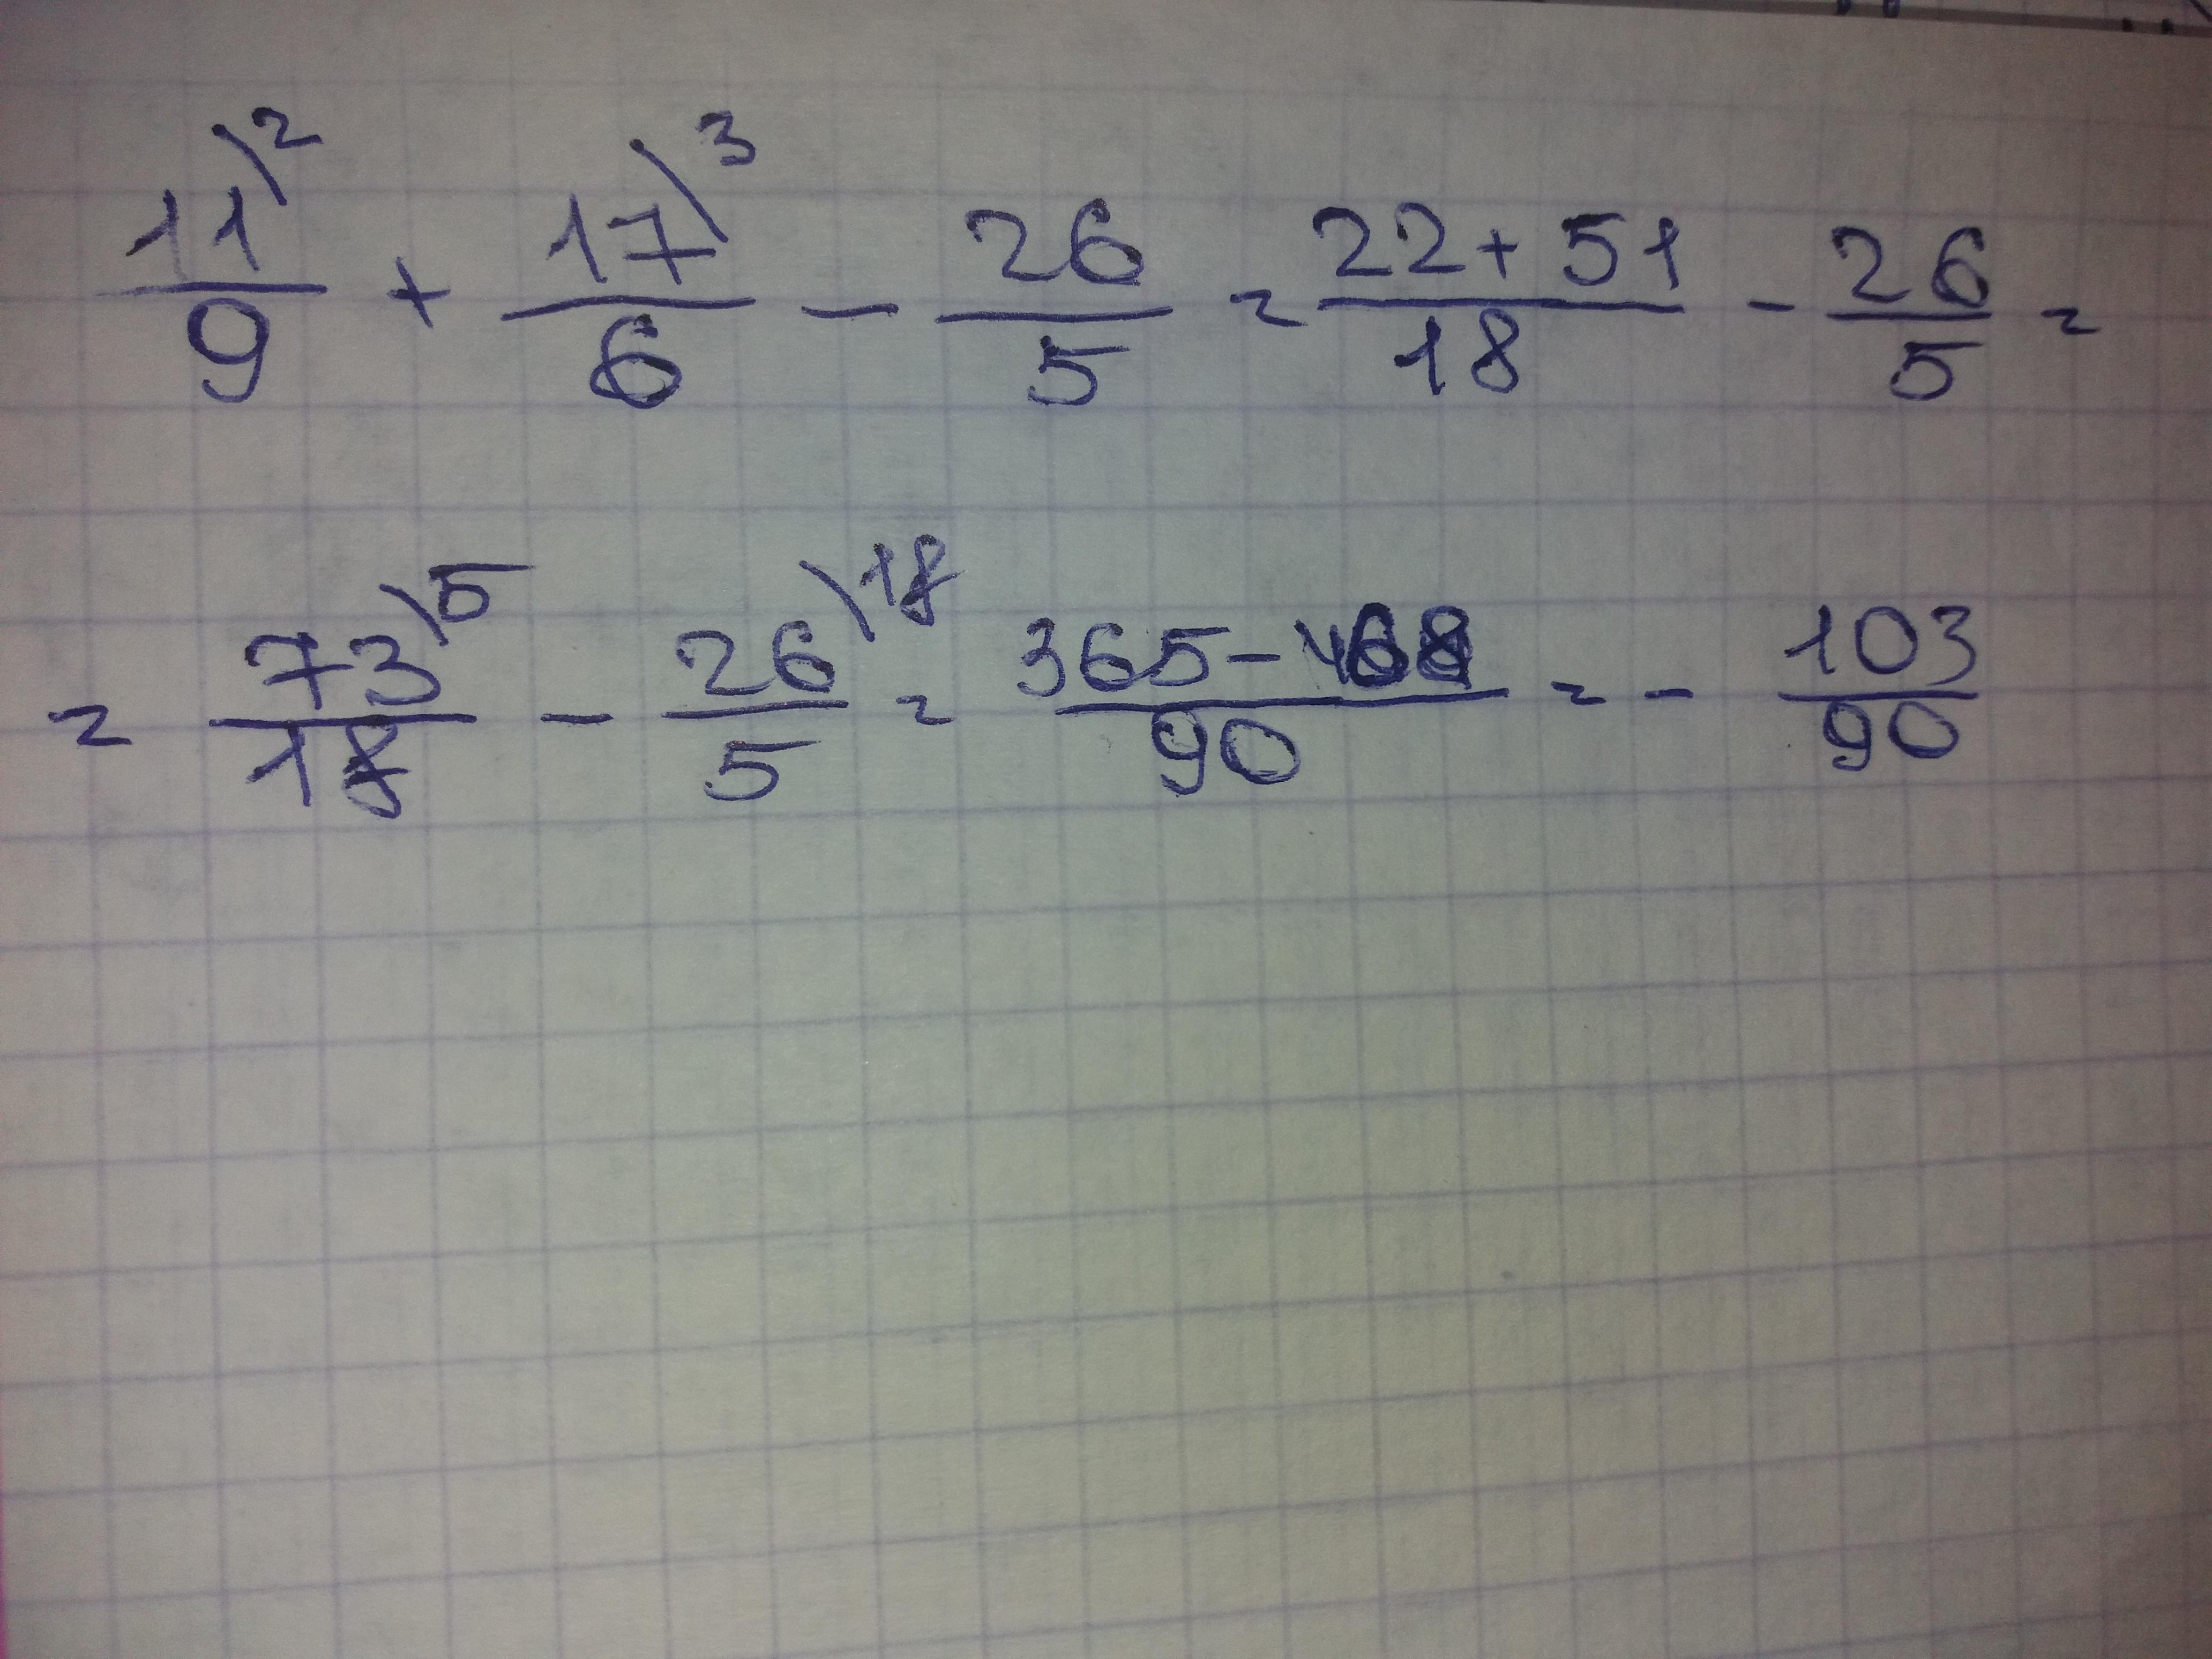 11\2/9 + 17\3/6 - 26/5 = 22+51/18 - 26/5 =
= 73\5/18 - 26\18/5 = 365-468/90 = - 103/90